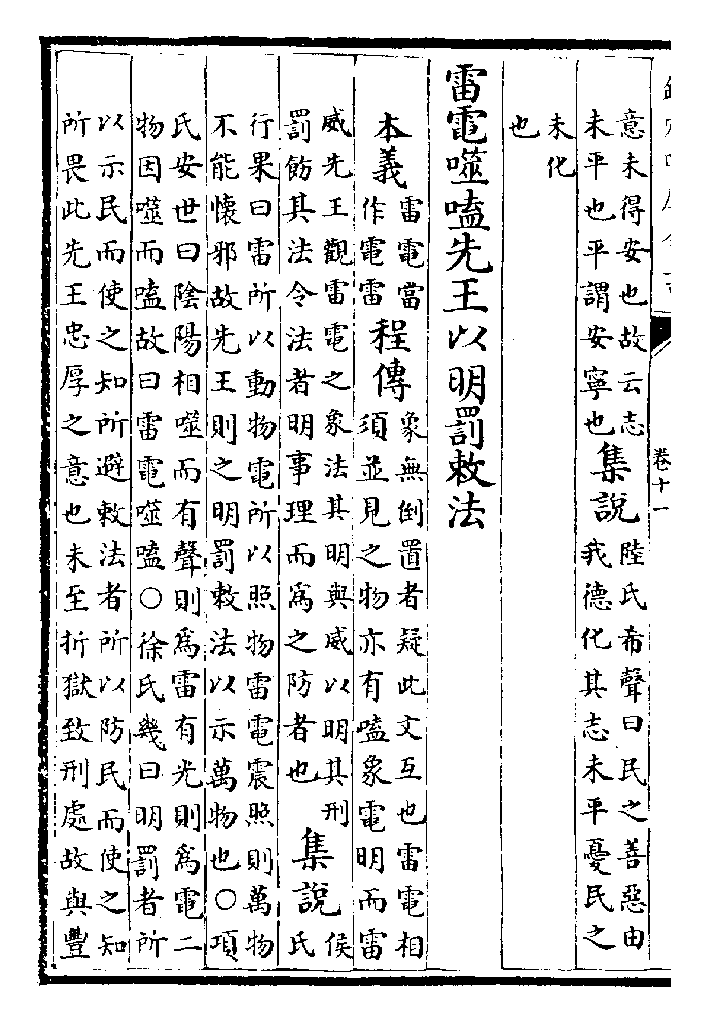 卷十一
意未得安也故云志
未平也平謂安寧也
集說
陸氏希聲曰民之善惡由
我德化其志未平憂民之
未化
也
雷電噬嗑先王以明罰敕法
本義
雷電當
作電雷
程傳
象無倒置者疑此文互也雷電相
須並見之物亦有嗑象電明而雷
威先王觀雷電之象法其明與威以明其刑
罰飭其法令法者明事理而為之防者也
集說
侯
氏
行果曰雷所以動物電所以照物雷電震照則萬物
不能懷邪故先王則之明罰敕法以示萬物也○項
氏安世曰陰陽相噬而有聲則為雷有光則為電二
物因噬而嗑故曰雷電噬嗑○徐氏幾曰明罰者所
以示民而使之知所避敕法者所以防民而使之知
所畏此先王忠厚之意也未至折獄致刑處故與豐